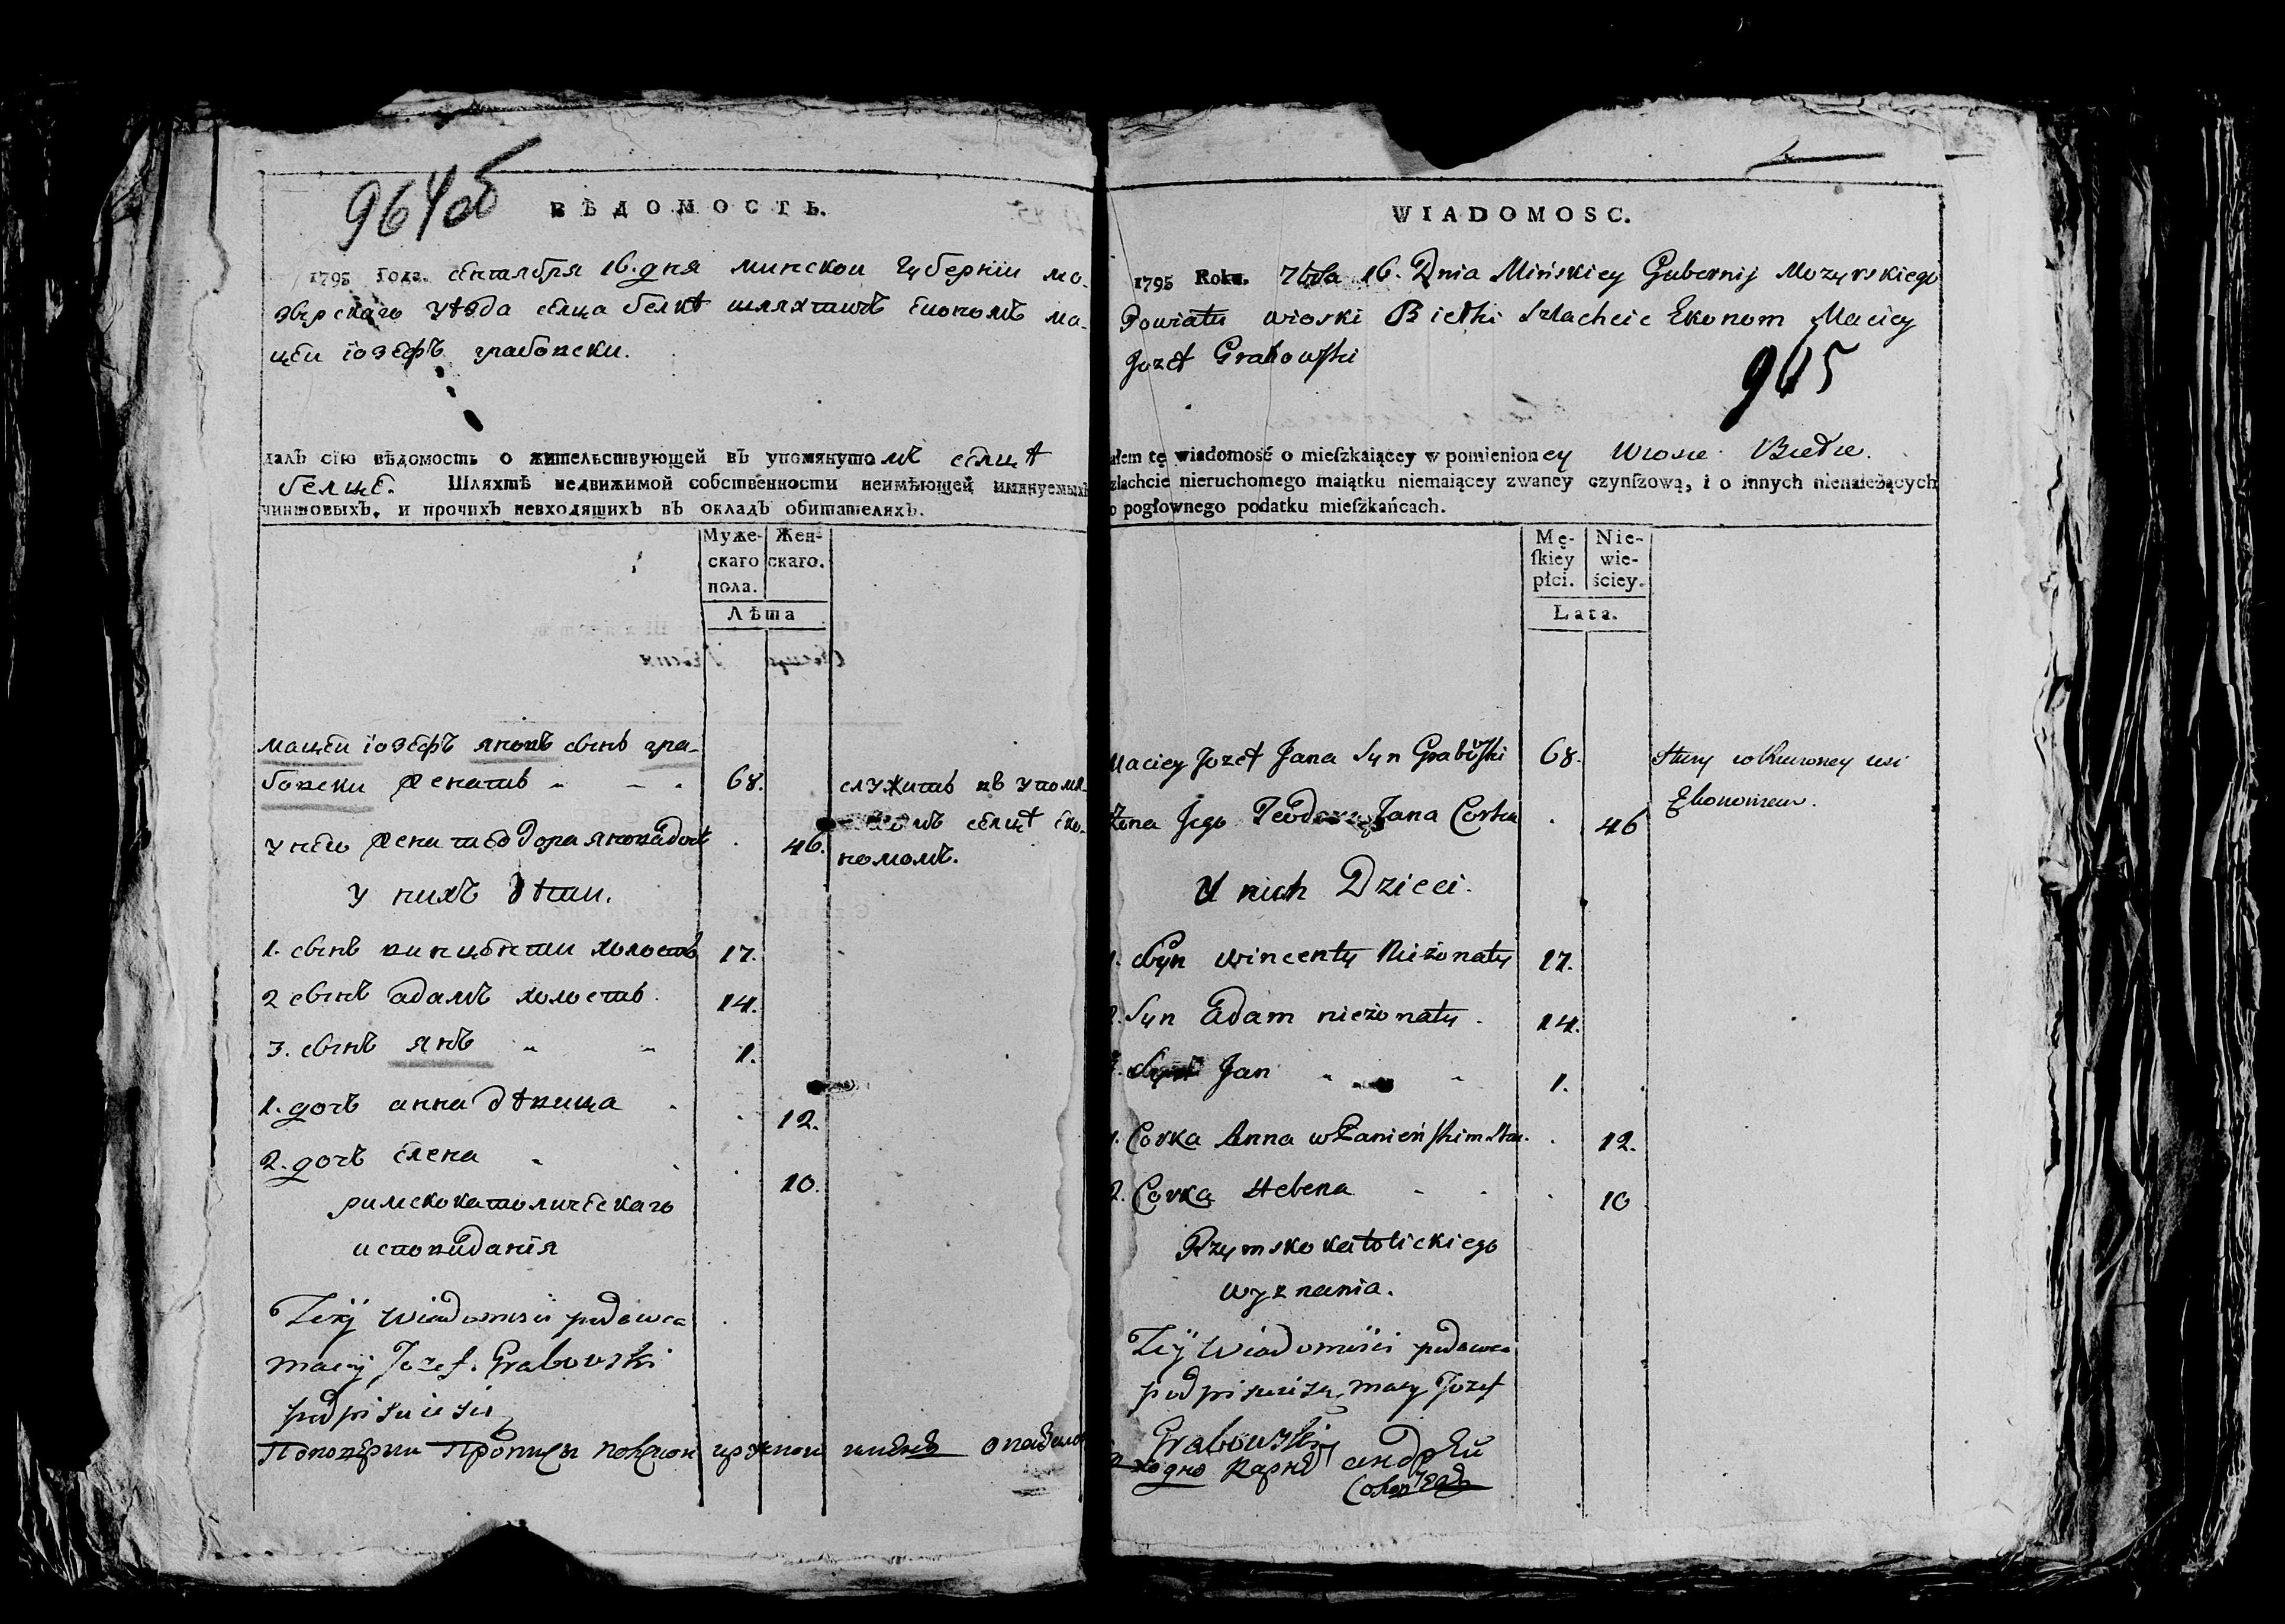 964об
ВѢДОМОСТЬ.
1795 Года. сентября 16. дня минской Губерніи мо-
зырскаго уѣзда селца белкѣ шляхтичъ економъ ма-
цеи іозефъ грабовски.
далъ сію вѣдомость о жительствующей въ упомянутомъ селцѣ
белцѣ. Шляхтѣ недвижимой собственности неимѣющей имянуемыхъ
чиншовыхъ, и прочихъ невходящихъ въ окладъ обитателяхъ.
Муже-скаго пола. Жен-скаго.
Лѣта
мацеи іозефъ яновъ сынъ гра-
бовски женатъ 68. служитъ въ упомя-
селцѣ еко-
у нево жена теодора яновадочь 46. номомъ.
у нихъ дѣти.
1. сынъ винцентии холостъ 17.
2 сынъ адамъ холостъ 14.
3. сынъ янъ 1.
1. дочь анна дѣвица 12.
2. дочь елена 10.
римскокатолическаго
исповѣданія
Tey Wiadomosci podawca
Maciey Jozef. Grabowski
podpisuie się
WIADOMOSC.
1795 Roku. 7bra 16. Dnia Mińskiey Gubernij Mozyrskiego
Powiatu wioski Biełki Szlachcic Ekonom Maciey
Jozef Grabowski
965
ałem tę wiadomość o mieſzkaiącey w pomienioney Wiosce
zlachcie nieruchomego maiątku niemaiącey zwaney czynſzową, i o innych nienależących
o pogłownego podatku mieſzkańcach.
Mę-ſkiey płci. Nie-wie-ściey.
Lata.
Maciey Jozef Jana Syn Grabowski 68.
Żona Jego Teodora Jana Corka 46 Ekonomem.
U nich Dzieci.
1. Syn wincenty Nieżonaty 17.
2. Syn Adam nieżonaty 14.
3. Syn Jan 1.
1. Corka Anna w Panieńskim Stan. 12.
2. Corka Helena 10
Rzymsko katolickiego
wyznania.
Tey Wiadomości podawca
podpisuie się Maciey Jozef
Grabowski
андрей